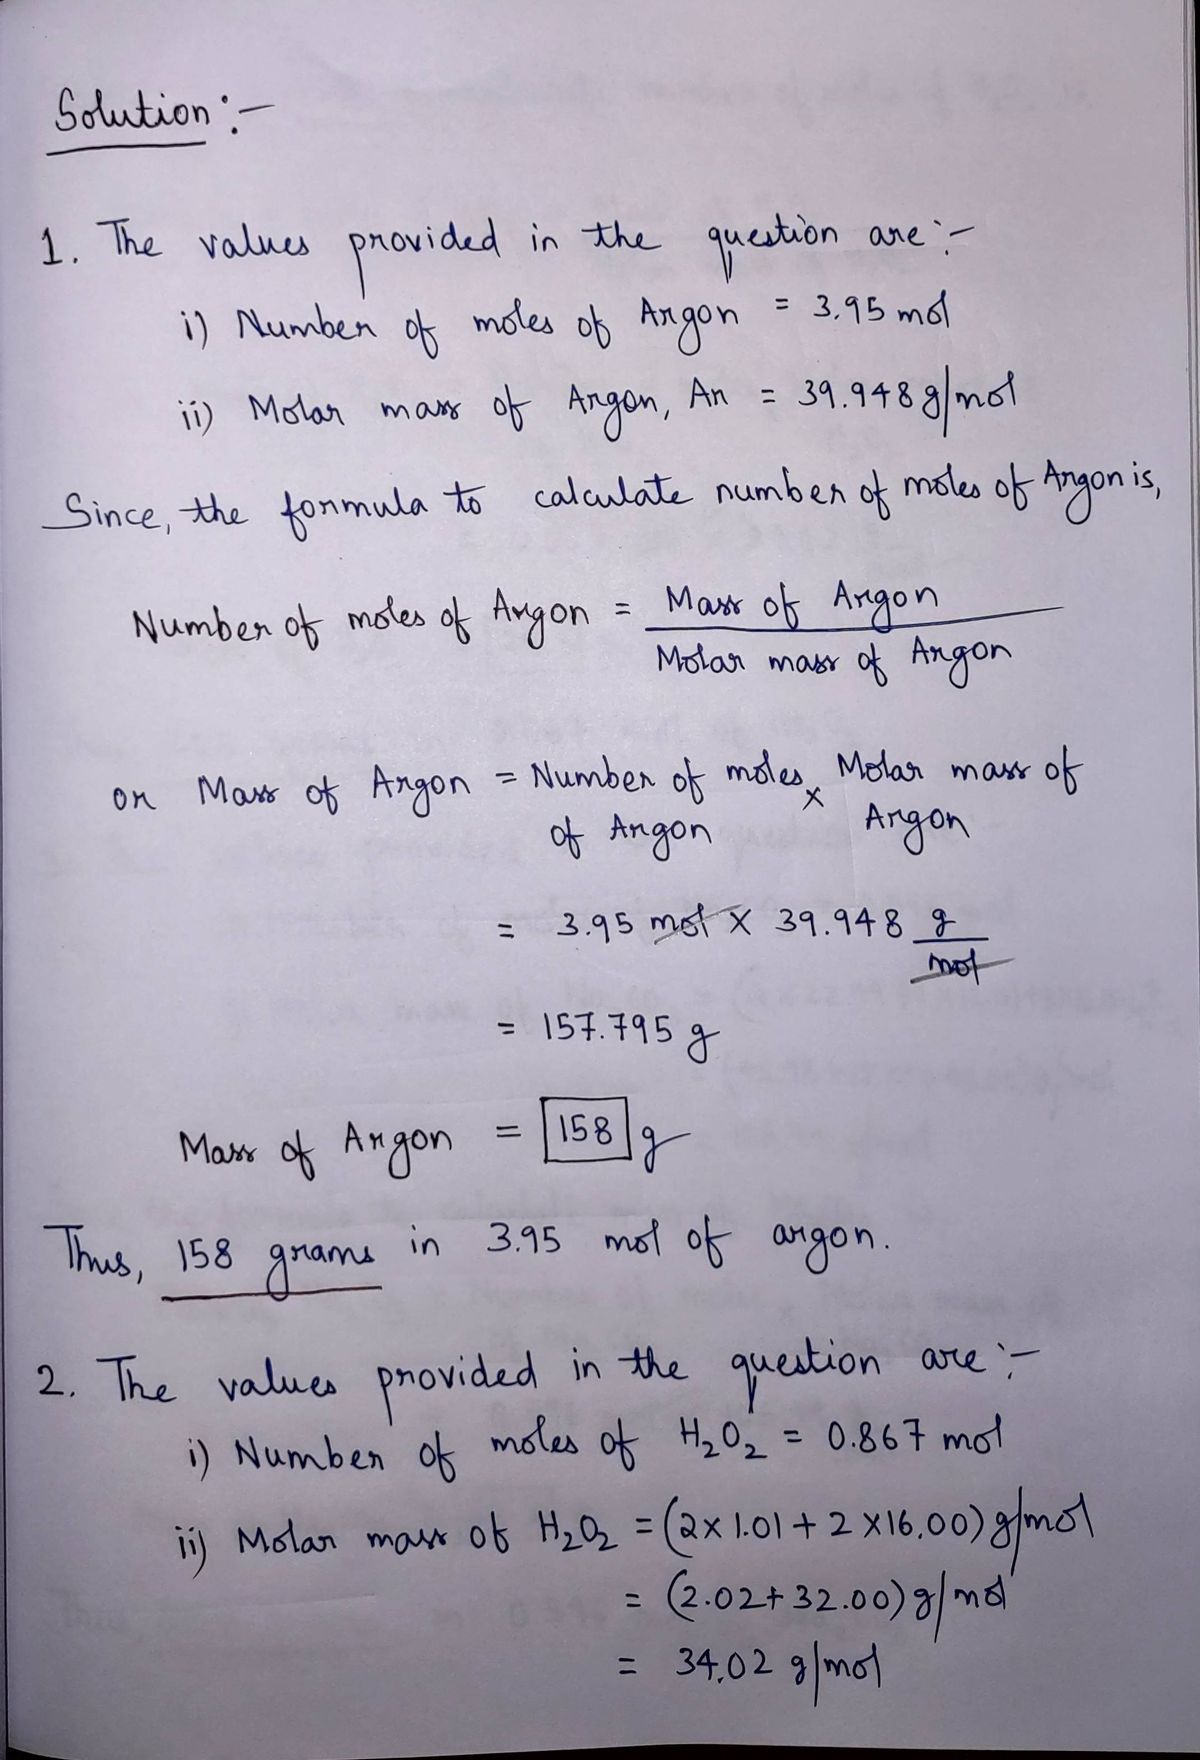 Solution :-
1. The values provided in the question are :-
i) Number of moles of Argon = 3.95 mol
ii) Molar mass of Argon, Ar = 39.948 g/mol
Since, the formula to calculate number of moles of Argon is,
Number of moles of Argon = Mass of Argon
Molar mass of Argon
or Mass of Argon = Number of moles × Molar mass of
of Argon Argon
= 3.95 mol × 39.948 g
mol
= 157.795 g
Mass of Argon = 158 g
Thus, 158 grams in 3.95 mol of argon.
2. The values provided in the question are :-
i) Number of moles of H₂O₂ = 0.867 mol
ii) Molar mass of H₂O₂ = (2×1.01 + 2×16.00) g/mol
= (2.02 + 32.00) g/mol
= 34.02 g/mol